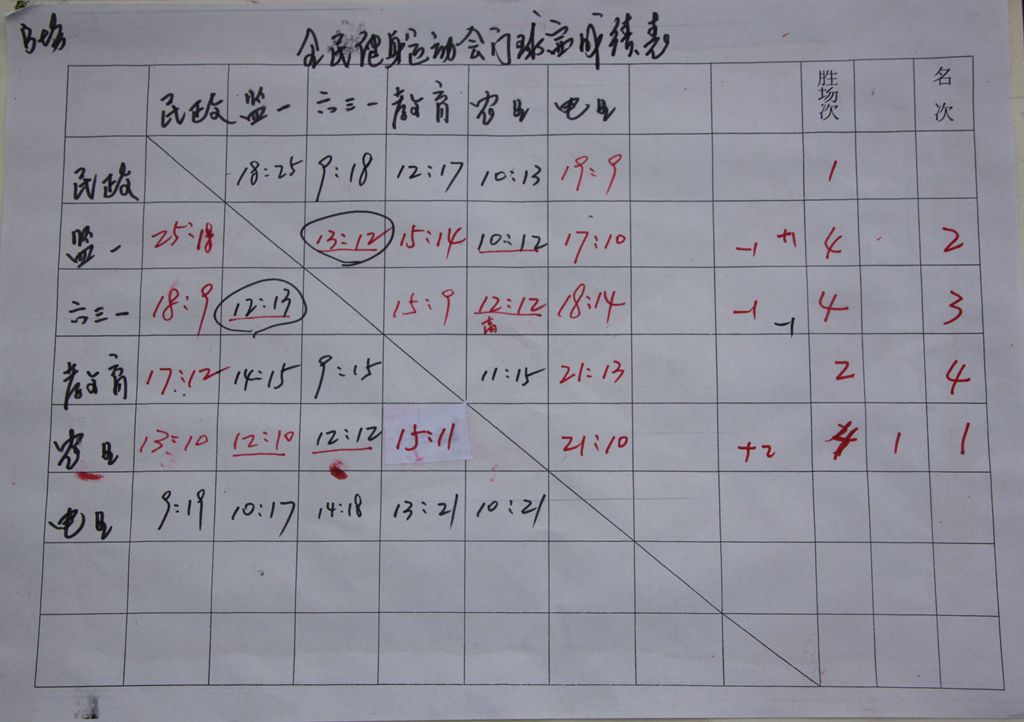 B场
全民健身运动会门球赛成绩表
民政 监一 六三一 教育 农 电 胜场次 名次
民政 18:25 9:18 12:17 10:13 19:9 1
监一 25:18 13:12 15:14 10:12 17:10 -1 +1 4 2
六三一 18:9 12:13 15:9 12:12 18:14 -1 -1 4 3
教育 17:12 14:15 9:15 11:15 21:13 2 4
农 13:10 12:10 12:12 15:11 21:10 +2 4 1 1
电 9:19 10:17 14:18 13:21 10:21